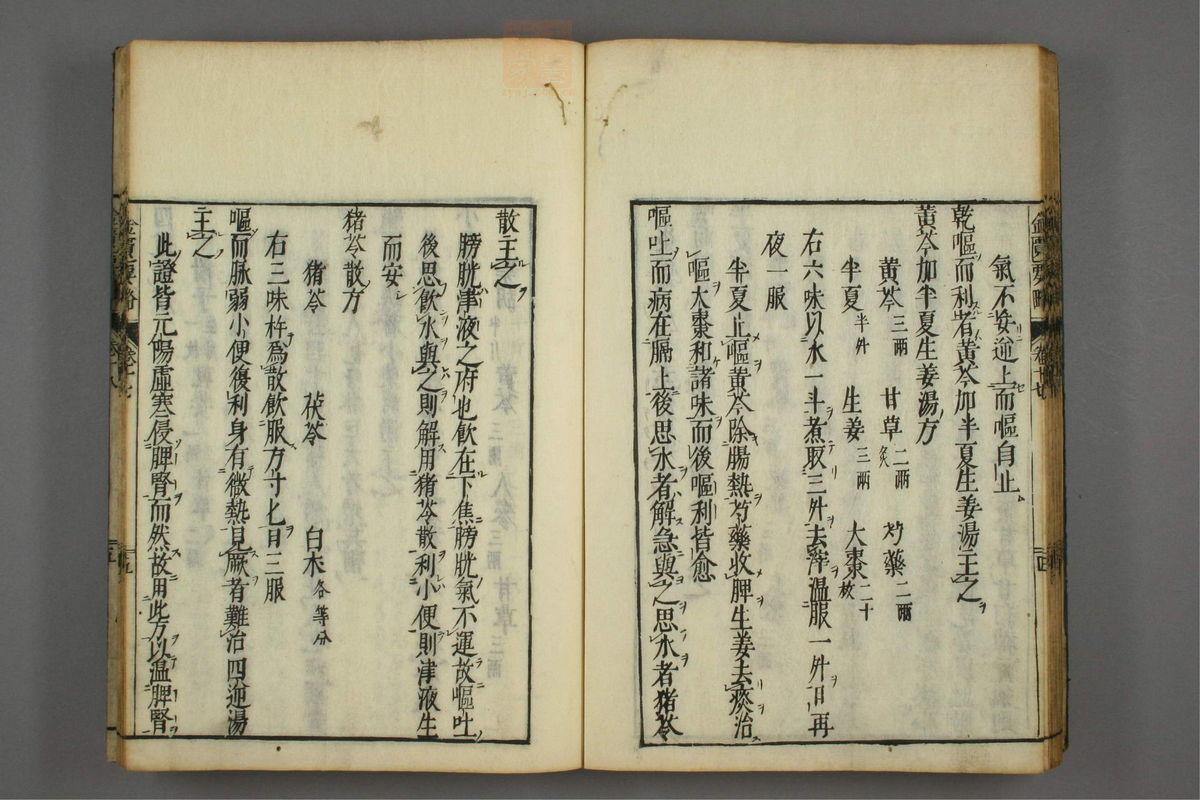 氣不安逆上而嘔自止
乾嘔而利者黃芩加半夏生姜湯主之
黃芩加半夏生姜湯方
黃芩三兩 甘草二兩炙 芍藥二兩
半夏半升 生姜三兩 大棗二十枚
右六味以水一斗煮取三升去滓溫服一升日再
夜一服
半夏止嘔黃芩除腸熱芍藥收脾生姜去痰治
嘔大棗和諸味而後嘔利皆愈
嘔吐而病在膈上後思水者解急與之思水者猪苓
散主之
膀胱津液之府也飲在下焦膀胱氣不運故嘔吐
後思飲水與之則解用猪苓散利小便則津液生
而安
猪苓散方
猪苓 茯苓 白朮各等分
右三味杵為散飲服方寸匕日三服
嘔而脉弱小便復利身有微熱見厥者難治四逆湯
主之
此證皆元陽虛寒侵脾腎而然故用此方以溫脾腎